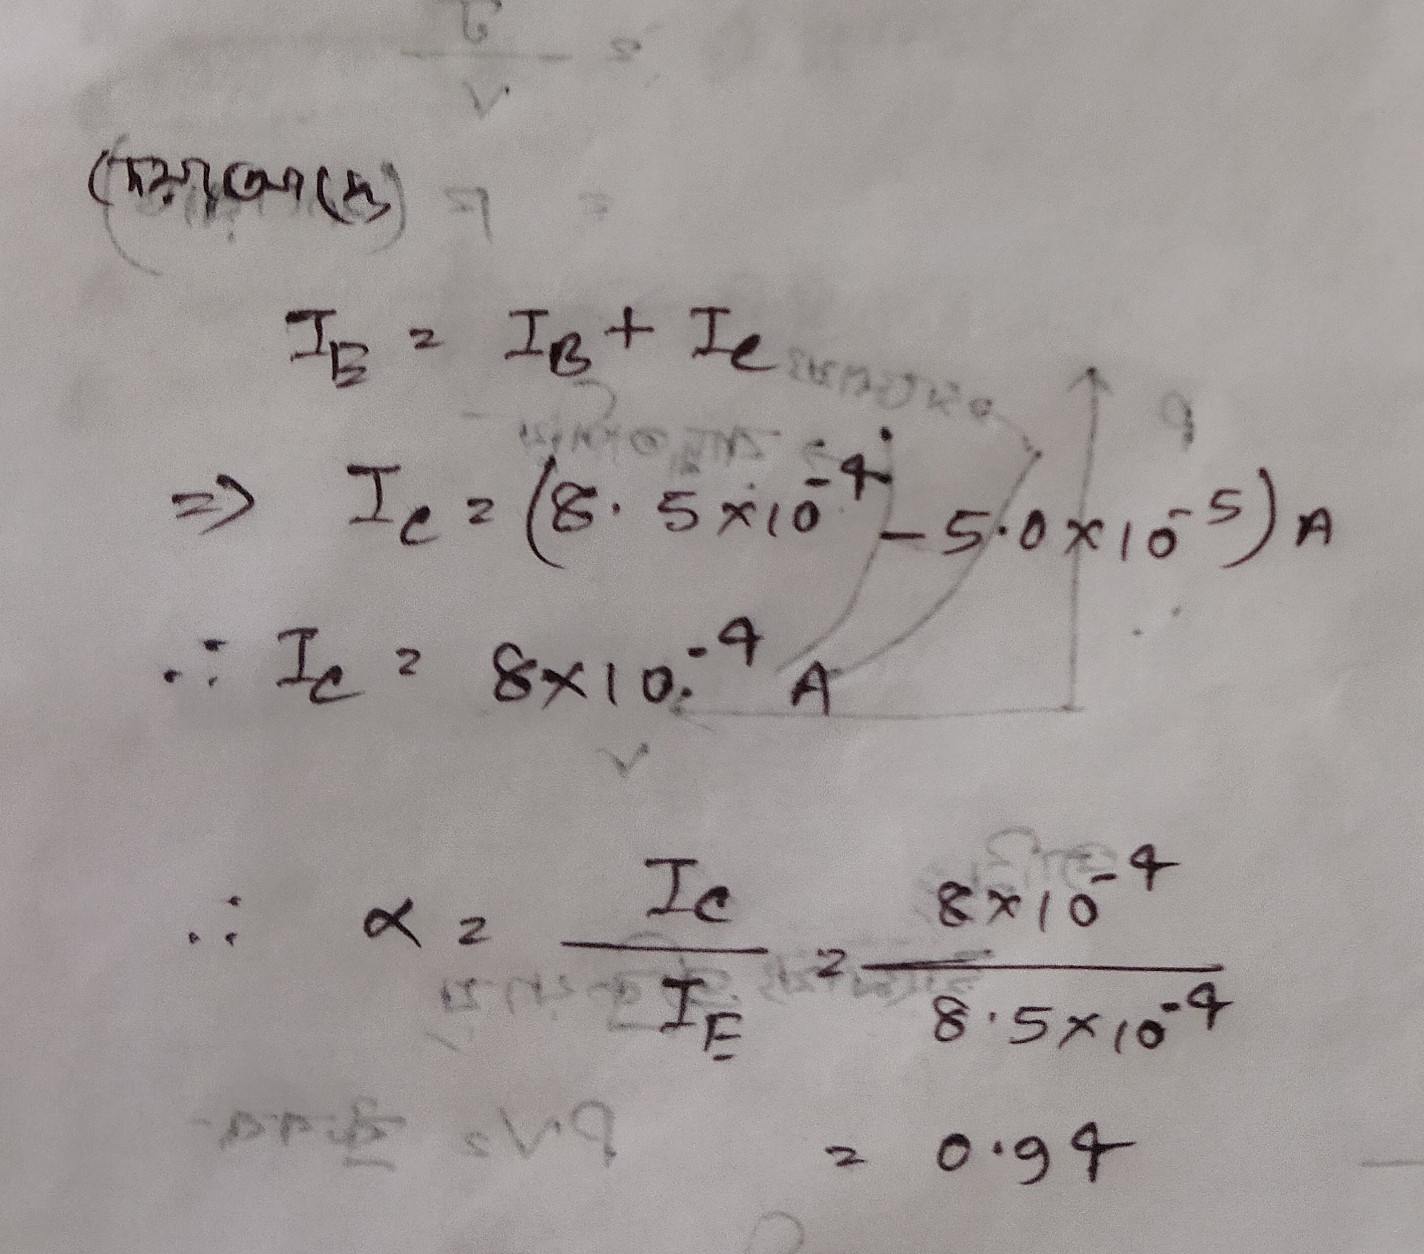 I_E = I_B + I_C
=> I_C = (8.5×10^-4 - 5.0×10^-5) A
∴ I_C = 8×10^-4 A
∴ α = I_C / I_E = 8×10^-4 / 8.5×10^-4
= 0.94